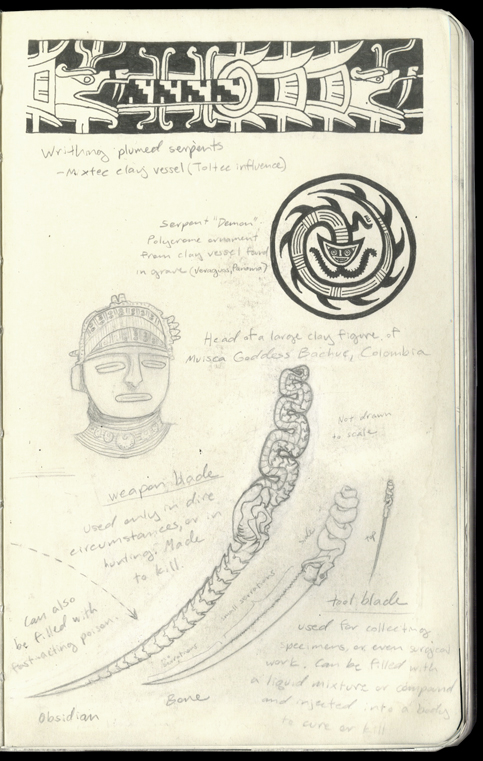 Writhing plumed serpents
- Mixtec clay vessel (Toltec influence)
Serpent "Demon"-
Polycrome ornament
from clay vessel found
in grave (Veraguas, Panama)
Head of a large clay figure, of
Muisca Goddess Bactue, Colombia
Not drawn
to scale
weapon blade
used only in dire
circumstances, or in
hunting. Made
to kill.
Can also
be filled with
fast-acting poison.
small serrations
serrations
tool blade
used for collecting
specimens, or even surgical
work. Can be filled with
a liquid mixture or compound
and injected into a body
to cure or kill
Bone
Obsidian